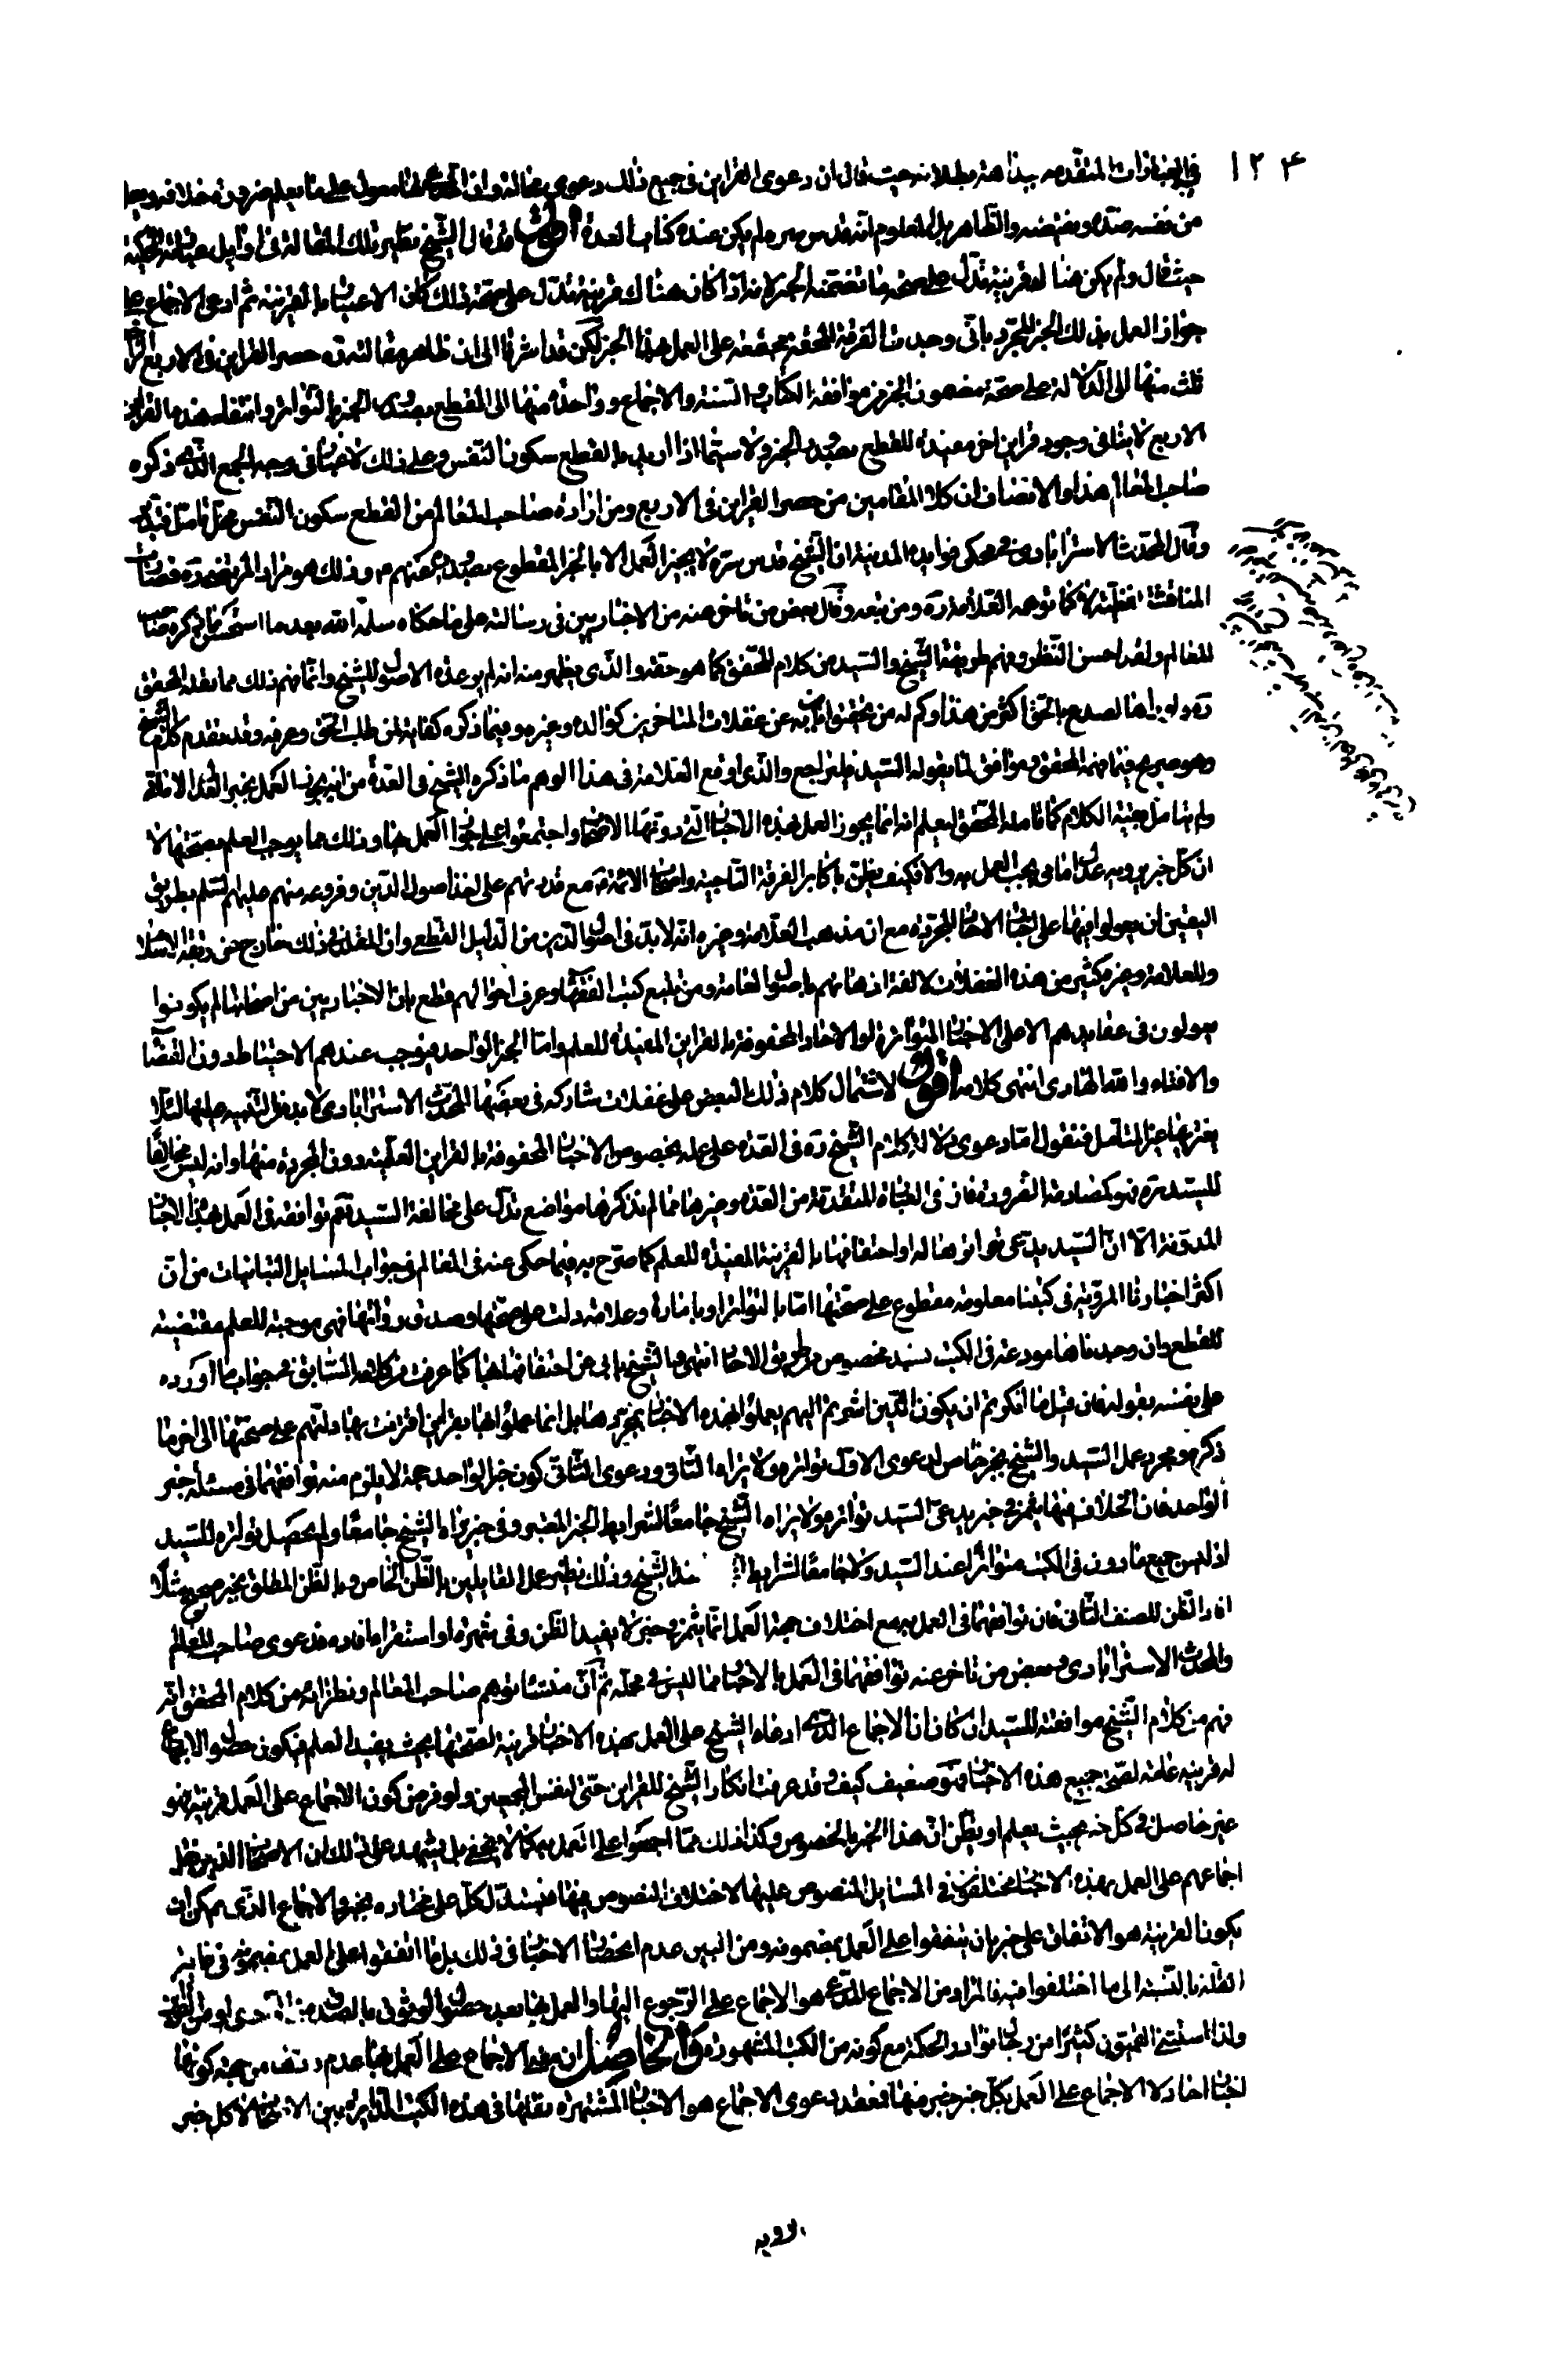 ١٢۴
في العبارات المتقدمه ببداهة بطلانه حيث قال ان دعوى القراين فى جميع ذلك دعوى محالة وان المدعى لها معول على ما يعلم ضرورة خلافه ويعلم
من نفسه ضده ونقيضه والظاهر بل المعلوم انه قدس سره لم يكن عنده كتاب العدة اقول قد قال الشيخ نظير تلك المقالة فى اوايل عباراته المحكية
حيث قال ولم يكن هناك قرينة تدل على صحة ما تضمنه الخبر لانه اذا كان هناك قرينة تدل على صحة ذلك كان الاعتبار بالقرينة ثم ادعى الاجماع على
جواز العمل بذلك الخبر المجرد بانى وجدت الفرقة المحقة مجتمعة على العمل بهذا الخبر لكن قد اشرنا الى ان ظاهر مقالته ره حصر القراين فى الاربع الراجع
ثلث منها الى الدلالة على صحة مضمون الخبر من موافقة الكتاب والسنة والاجماع وواحدة منها الى القطع بصدور الخبر وهى التواتر وانتفاء هذه القراين
الاربع لا ينافى وجود قراين اخر مفيدة للقطع بصدور الخبر ولا سيما اذا اريد بالقطع سكون النفس وعلى ذلك لا غبار فى وجه الجمع الذى ذكره
صاحب المعالم هذا والانصاف ان كلا المقامين من حصر القراين فى الاربع ومن ارادة صاحب المعالم من القطع سكون النفس محل تامل فتدبر
وقال المحدث الاسترابادى فى محكى فوايد المدنية ان الشيخ قدس سره لا يجيز العمل الا بالخبر المقطوع بصدوره عنهم ع وذلك هو مراد المرتضى ره فصارت
المناقشة لفظية لا كما توهمه العلامة ره ومن تبعه وقال بعض من تاخر عنه من الاخباريين فى رسالته على ما حكاه سلمه الله بعدما استحسن ما ذكره صاحب
المعالم ولقد احسن النظر وفهم طريقة الشيخ والسيد من كلام المحقق كما هو حقه والذى يظهر منه انه لم ير عدة الاصول للشيخ وانما فهم ذلك مما نقله المحقق
ره ولو راها لصدع بالحق اكثر من هذا وكم له من تحقيق ابان به عن غفلات المتاخرين كوالده وغيره وفيما ذكره كفاية لمن طلب الحق وعرفه وقد تقدم كلام الشيخ
وهو صريح فيما فهمه المحقق وموافق لما يقوله السيد فليراجع والذى اوقع العلامة فى هذا الوهم ما ذكره الشيخ فى العدة من انه يجوز العمل بخبر العدل الامامى
ولم يتامل بقية الكلام كما تامله المحقق ليعلم انه انما يجوز العمل بهذه الاخبار التى دونتها الاصحاب واجتمعوا على جواز العمل بها وذلك مما يوجب العلم بصحتها لا
ان كل خبر يرويه عدل امامى يجب العمل به والا فكيف يظن باكابر الفرقة الناجية واصحاب الائمة ع مع قدرتهم على اخذ اصول الدين وفروعه منهم عليهم السلم بطريق
اليقين ان يعولوا فيها على اخبار الاحاد المجردة مع ان مذهب العلامة وغيره انه لا بد فى اصول الدين من الدليل القطعى وان المقلد فى ذلك خارج عن ربقة الاسلام
وللعلامة وغيره كثير من هذه الغفلات لالفة اذهانهم باصول العامة ومن تتبع كتب القدماء وعرف احوالهم قطع بان الاخباريين من اصحابنا لم يكونوا
يعولون فى عقايدهم الا على الاخبار المتواترة او الاحاد المحفوفة بالقراين المفيدة للعلم واما الخبر الواحد فيوجب عندهم الاحتياط دون القضاء
والافتاء والله الهادى انتهى كلامه اقول لاشتمال كلام ذلك البعض على غفلات شاركه فى بعضها المحدث الاسترابادى لا بد من التنبيه عليها لئلا
يغتر بها غير المتامل فنقول اما دعوى دلالة كلام الشيخ ره فى العدة على عمله بخصوص الاخبار المحفوفة بالقراين العلمية دون المجردة منها وانه ليس مخالفا
للسيد ره فهو كمصادمة الضرورة فان فى العبارة المتقدمة من العدة وغيرها مما لم نذكرها مواضع تدل على مخالفة السيد نعم يوافقه فى العمل بهذه الاخبار
المدونة الا ان السيد يدعى تواترها له او احتفافها بالقرينة المفيدة للعلم كما صرح به فيما حكى عنه فى المعالم فى جواب المسايل التبانيات من ان
اكثر اخبارنا المروية فى كتبنا معلومة مقطوع على صحتها اما بالتواتر او بامارة وعلامة دلت على صحتها وصدق رواتها فهى موجبة للعلم مقتضية
للقطع وان وجدناها مودعة فى الكتب بسند مخصوص من طريق الاحاد انتهى والشيخ يابى عن احتفافها بها كما عرفت من كلامه السابق فى جواب ما اورده
على نفسه بقوله فان قيل ما انكرتم ان يكون الذين اشرتم اليهم يعملوا بهذه الاخبار بمجردها بل انما عملوا بها بقراين اقترنت بها دلتهم على صحتها الى اخر ما
ذكره ومجرد عمل السيد والشيخ بخبر خاص لدعوى الاول تواتره ولا يراه الثانى ودعوى الثانى كون خبر الواحد حجة لا يلزم منه توافقهما فى مسئلة خبر
الواحد فان الخلاف فيها يثمر فى خبر يدعى السيد تواتره ولا يراه الشيخ جامعا لشرايط الخبر المعتبر وفى خبر يراه الشيخ جامعا ولم يحصل تواتره للسيد
اذ ليس جميع ما دون فى الكتب متواترا عند السيد ولا جامعا لشرايط عند الشيخ وذلك نظير عمل القايلين بالظن الخاص وبالظن المطلق بخبر صحيح مثلا
افاد الظن للصنف الثانى فان توافقهما فى العمل به مع اختلاف جهة العمل انما يثمر فى خبر لا يفيد الظن وفى شهرة او استقراء افاده فدعوى صاحب المعالم
والمحدث الاسترابادى وبعض من تاخر عنه توافقهما فى العمل بالاخبار مما ليس فى محله ثم ان منشا توهم صاحب المعالم ونظرائه من كلام المحقق انه
فهم من كلام الشيخ موافقته للسيد ان كان ان الاجماع الذى ادعاه الشيخ على العمل بهذه الاخبار قرينة لصحتها بحيث يفيد العلم فيكون حصول الاجماع
له قرينة عامة لصحة جميع هذه الاخبار فهو ضعيف كيف وقد عرفت انكار الشيخ للقراين حتى لنفس المجمعين ولو فرض كون الاجماع على العمل قرينة فهو
غير حاصل فى كل خبر بحيث يعلم او يظن ان هذا الخبر بالخصوص وكذا ذلك مما اجمعوا على العمل به كما لا يخفى بل يشهد على ذلك ان الاصحاب الذين نقل
اجماعهم على العمل بهذه الاخبار مختلفون فى المسايل المنصوص عليها لاختلاف النصوص فيها فيستدل كل على مختاره بخبر والاجماع الذى يمكن ان
يكون القرينة هو الاتفاق على خبر بان يتفقوا على العمل بمضمونه ومن البين عدم انحصار الاخبار فى ذلك بل ما اتفقوا على العمل بمضمونه فى غاية
القلة بالنسبة الى ما اختلفوا فيه فالمراد من الاجماع المدعى هو الاجماع على الرجوع اليها والعمل بها بعد حصول الوثوق بالصدور
ولذا استثنى القميون كثيرا من رجال نوادر الحكمة مع كونه من الكتب المشهورة والحاصل ان معنى الاجماع على العمل بها عدم ردها من جهة كونها
اخبار احاد لا الاجماع على العمل بكل خبر خبر منها فمعقد دعوى الاجماع هو الاخبار المشتهرة بنقلها فى هذه الكتب الدايرة بين الاصحاب لا كل خبر
يرويه